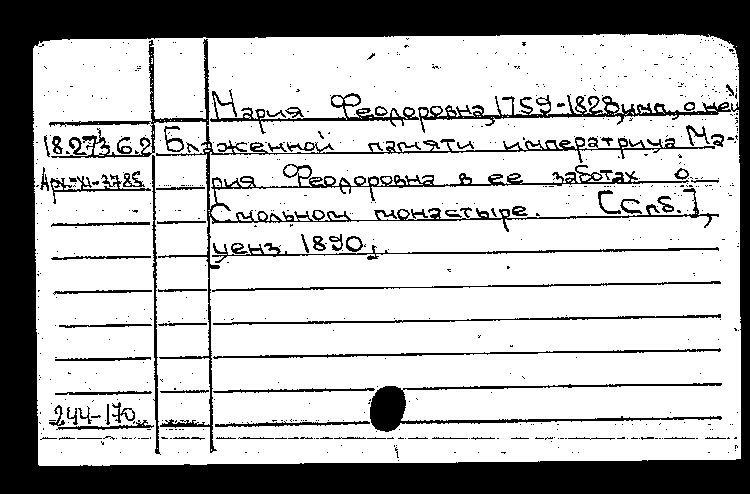 Мария Феодоровна, 1759-1828, имп., о ней
18.273.6.2 Блаженной памяти императрица Ма-
Арх.-XI-3785 рия Феодоровна в ее заботах о
Смольном монастыре. [Спб.],
ценз. 1890.
244-170